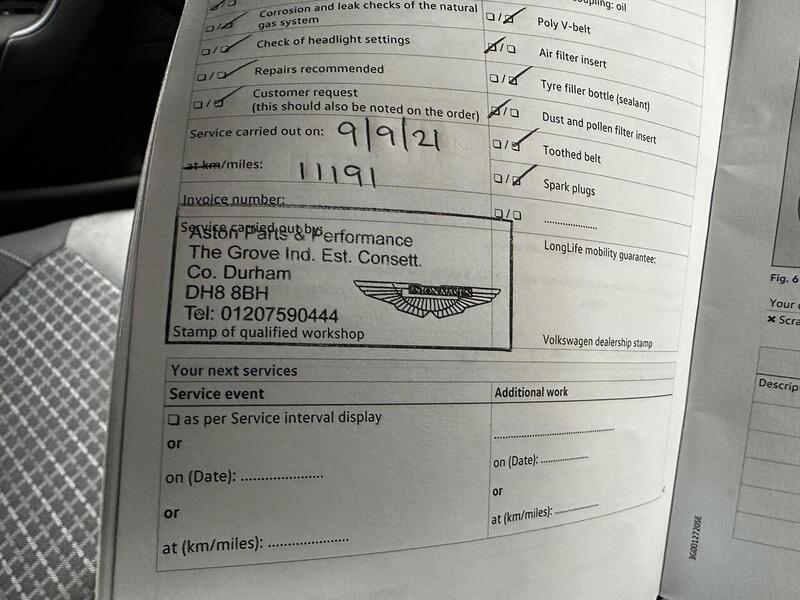 coupling: oil
Corrosion and leak checks of the natural
gas system
Check of headlight settings
Repairs recommended
Customer request
(this should also be noted on the order)
Service carried out on: 9/9/21
at km/miles: 11191
Invoice number:
Service carried out by:
Aston Parts & Performance
The Grove Ind. Est. Consett.
Co. Durham
DH8 8BH
Tel: 01207590444
ASTON MARTIN
Stamp of qualified workshop
Poly V-belt
Air filter insert
Tyre filler bottle (sealant)
Dust and pollen filter insert
Toothed belt
Spark plugs
....................
LongLife mobility guarantee:
Volkswagen dealership stamp
Your next services
Service event
Additional work
❏ as per Service interval display
or
on (Date): ......................
or
at (km/miles): ......................
................................
on (Date): ..............
or
at (km/miles): .............
3G0012720SE
Fig. 6
Your
✖ Scra
Descrip